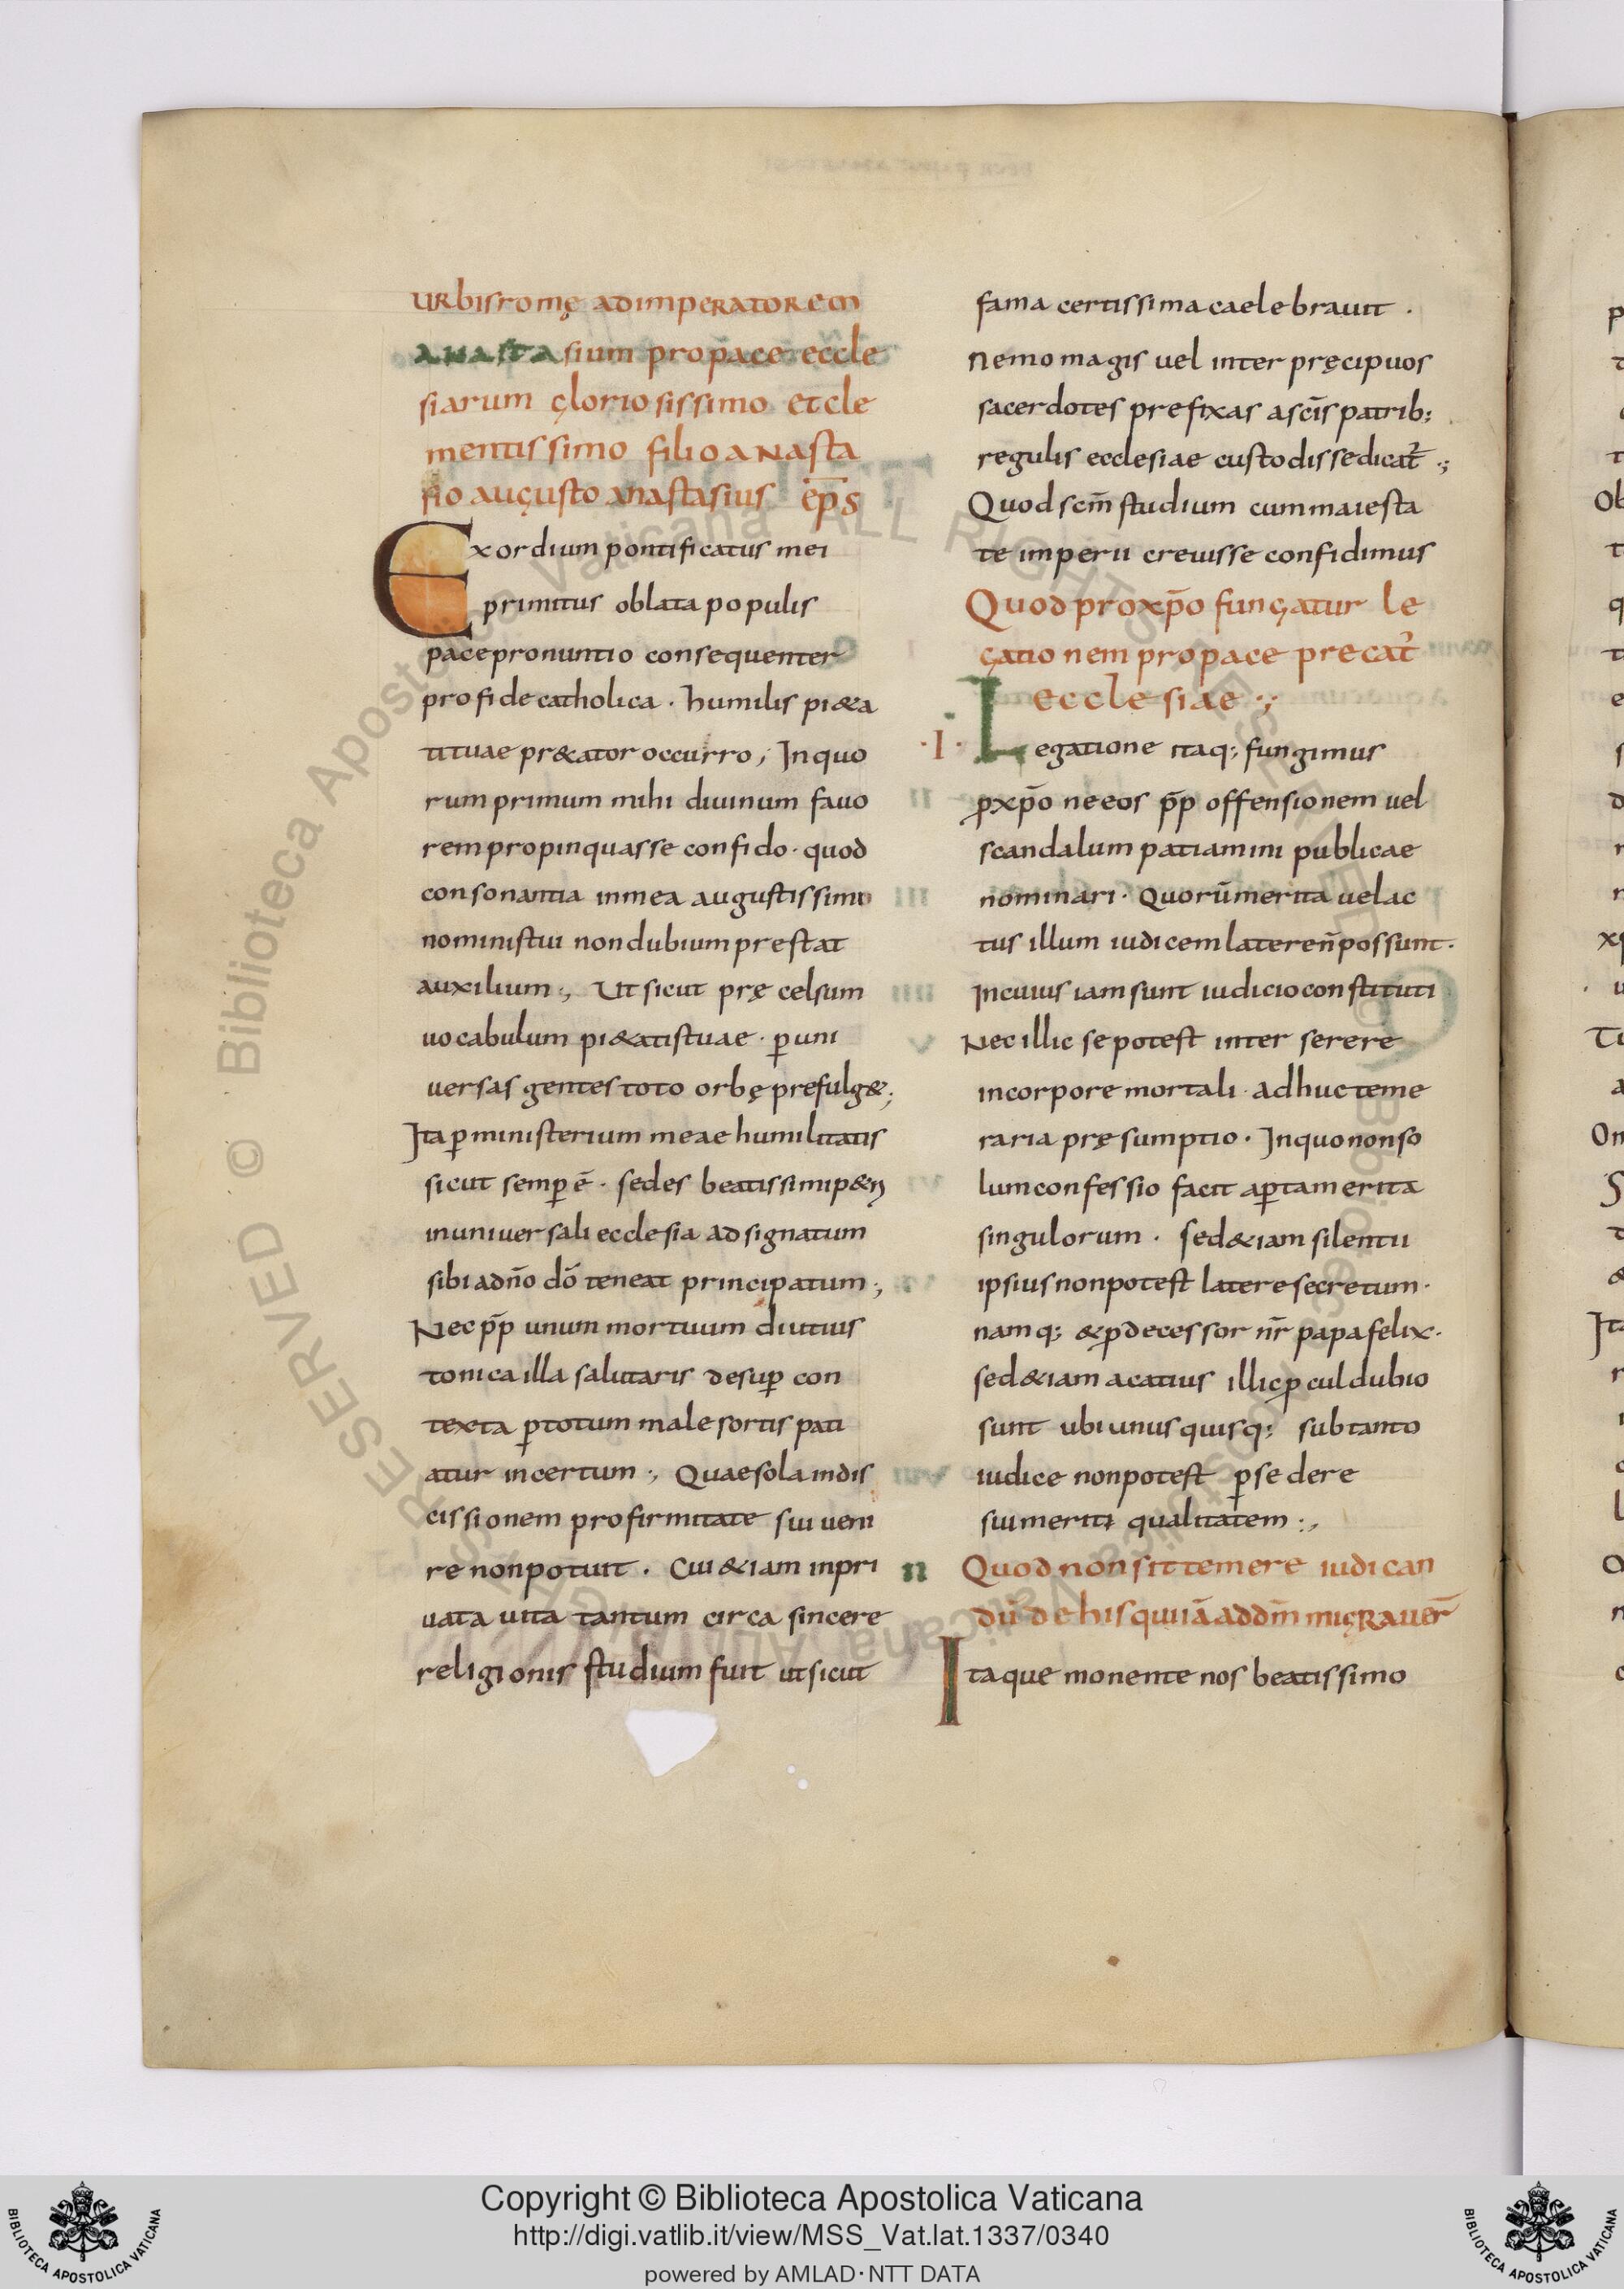 urbis romę ad imperatorem
anastasium pro pace eccle
siarum glorio sissimo et cle
mentissimo filio anasta
sio augusto anastasius ep̄s
Exordium pontificatus mei
primitus oblata populis
pace pronuntio consequenter
pro fide catholica · humilis pi&a
ti tuae pr&ator occurro; In quo
rum primum mihi diuinum fauo
rem propinquasse confido · quod
consonantia in mea augustissimi
nominis tui non dubium prestat
auxilium:, Ut sicut prę celsum
uocabulum pi&atis tuae · ꝑ uni
uersas gentes toto orbę prefulg&;
Ita ꝑ ministerium meae humilitatis
sicut semꝑ ē · sedes beatissimi p&ri
in uniuersali ecclesia adsignatum
sibi a dn̄o dō teneat principatum;
Nec p̄p unum mortuum diutius
tonica illa salutaris desuꝑ con
texta ꝑ totum male sortis pati
atur incertum:, Quae sola indis
cissionem pro firmitate sui ueni
re non potuit · Cui &iam in pri
uata uita tantum circa sincere
religionis studium fuit ut sicut
fama certissima caelebrauit ·
Nemo magis uel inter pręcipuos
sacerdotes prefixas a sc̄is patrib;
regulis ecclesiae custodisse dicat̄ :;
Quod scm̄ studium cum maiesta
te imperii creuisse confidimus
Quod pro xp̄o fungatur le
gationem pro pace precat̄
ecclesiae :;
·I· Legatione itaq; fungimur
ꝓ xp̄o ne eos p̄p offensionem uel
scandalum patiamini publicae
nominari · Quorū merita uel ac
tus illum iudicem lateren̄ possunt ·
In cuius iam sunt iudicio constituti
Nec illic se potest inter serere
in corpore mortali · adhuc teme
raria pręsumptio · In quo non so
lum confessio facit aꝑta merita
singulorum · sed &iam silentii
ipsius non potest latere secretum ·
namq; & ꝓdecessor nr̄ papa felix ·
sed &iam acatius illic ꝓcul dubio
sunt ubi unusquisq; sub tanto
iudice non potest ꝑdere
sui meriti qualitatem :,
II Quod non sit temere iudican
dū de his qui iā ad dn̄m migrauer̄
Itaque monente nos beatissimo
Copyright © Biblioteca Apostolica Vaticana
http://digi.vatlib.it/view/MSS_Vat.lat.1337/0340
powered by AMLAD·NTT DATA
BIBLIOTECA APOSTOLICA VATICANA
BIBLIOTECA APOSTOLICA VATICANA